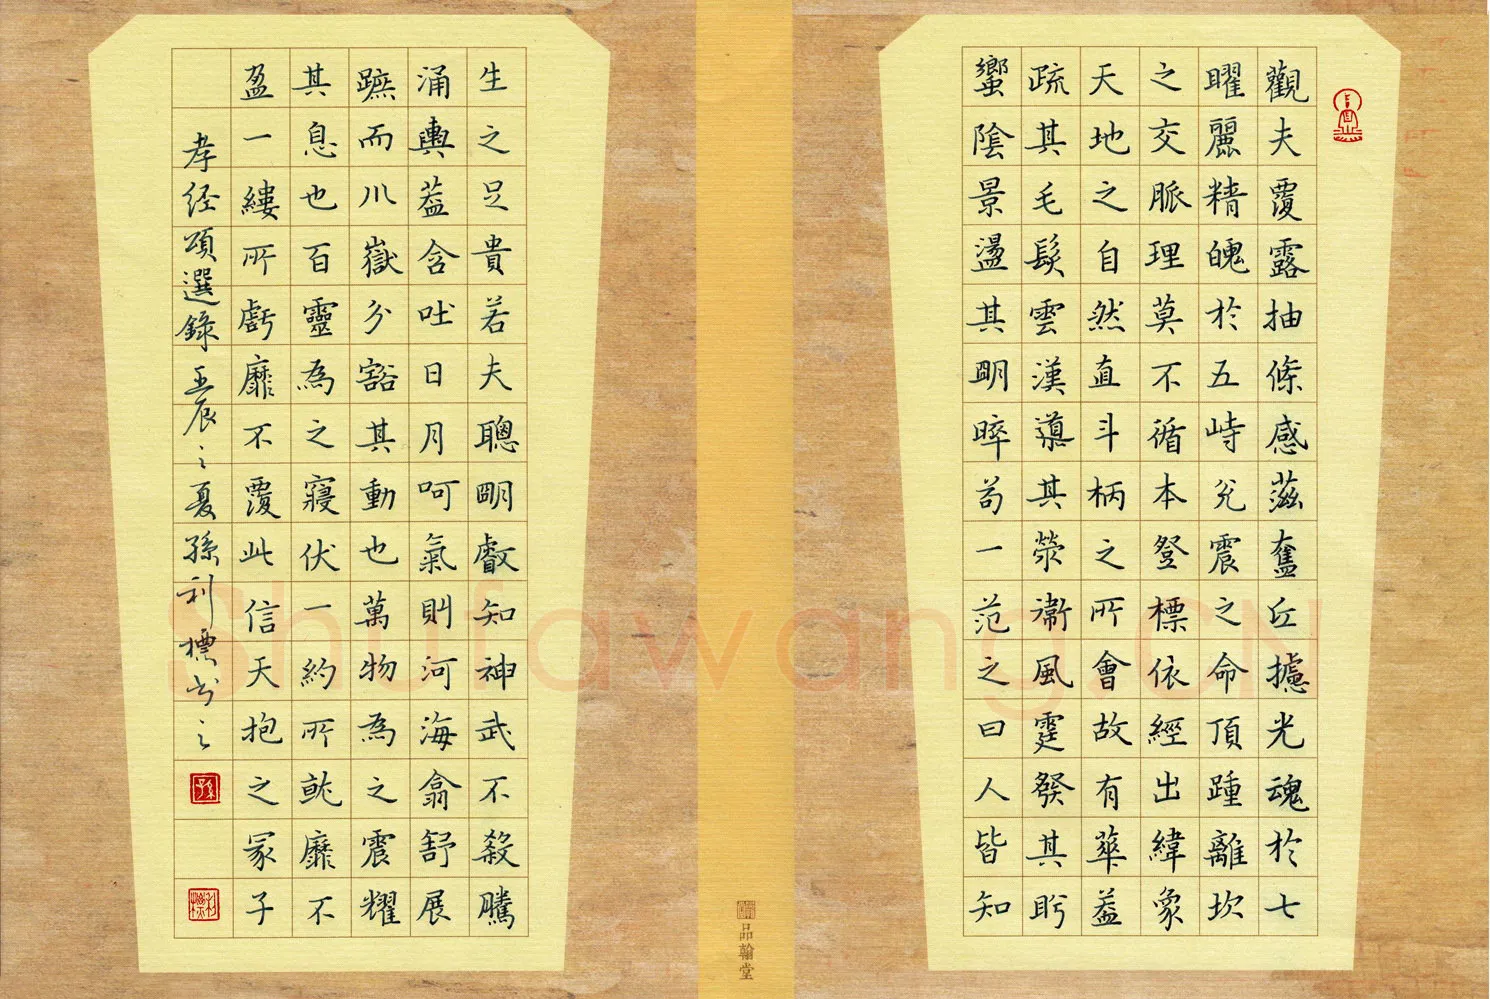 觀夫覆露抽條感奮丘攄光魂於七
曜麗精魄於五峙兊震之命頂踵離坎
之交脈理莫不循本登標依經出緯象
天地之自然直斗柄之所會故有華蓋
疏其毛髮雲漢導其滎衞風霆發其盻
蠁陰景盪其明晬茍一范之曰人皆知
生之足貴若夫聰明叡知神武不殺騰
涌輿蓋含吐日月呵氣則河海翕舒展
蹠而川嶽分豁其動也萬物為之震耀
其息也百靈為之寢伏一約所就靡不
盈一縷所虧靡不覆此信天抱之冢子
孝经頌選錄壬辰之夏孫利標书之
孫
利標
品翰堂
Shufawang.CN